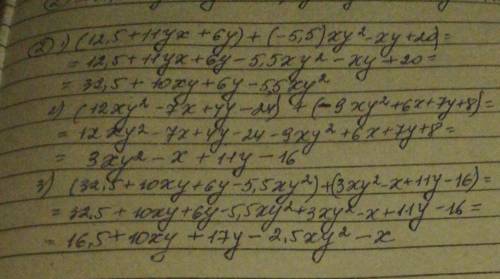 ② 1) (12,5+11yx+6y)+(-5,5)xy²-xy+20)=
=12,5+11yx+6y-5,5xy²-xy+20=
=32,5+10xy+6y-5,5xy²
2) (12xy²-7x+4y-24)+(-9xy²+6x+7y+8)=
=12xy²-7x+4y-24-9xy²+6x+7y+8=
=3xy²-x+11y-16
3) (32,5+10xy+6y-5,5xy²)+(3xy²-x+11y-16)=
=32,5+10xy+6y-5,5xy²+3xy²-x+11y-16=
=16,5+10xy+17y-2,5xy²-x